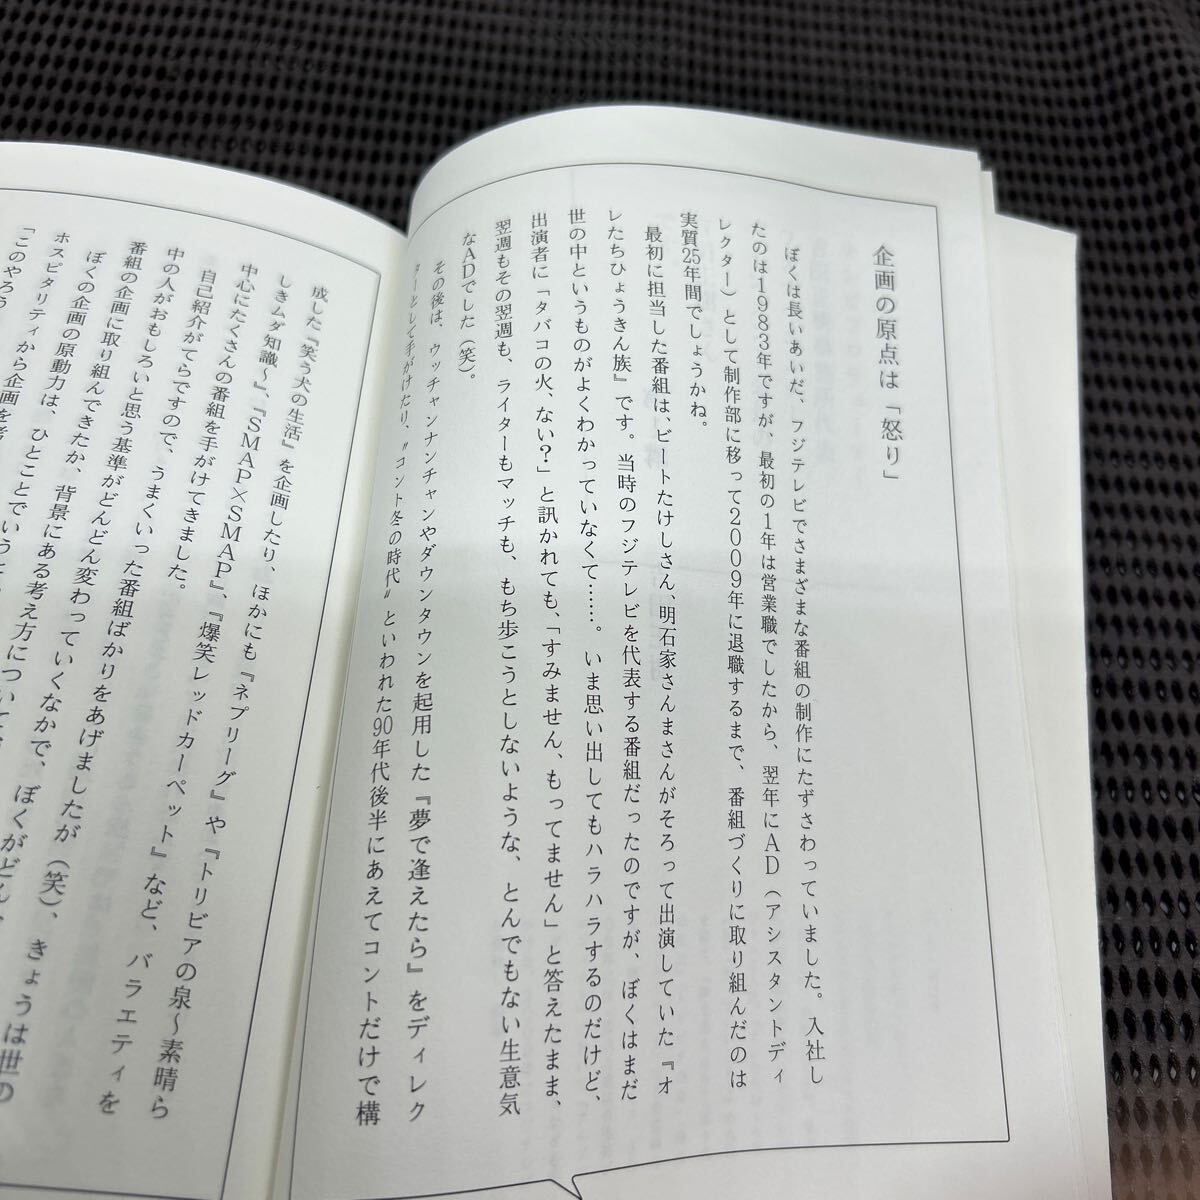 企画の原点は「怒り」
ぼくは長いあいだ、フジテレビでさまざまな番組の制作にたずさわっていました。入社し
たのは1983年ですが、最初の1年は営業職でしたから、翌年にAD（アシスタントディ
レクター）として制作部に移って2009年に退職するまで、番組づくりに取り組んだのは
実質25年間でしょうかね。
最初に担当した番組は、ビートたけしさん、明石家さんまさんがそろって出演していた『オ
レたちひょうきん族』です。当時のフジテレビを代表する番組だったのですが、ぼくはまだ
世の中というものがよくわかっていなくて……。いま思い出してもハラハラするのだけど、
出演者に「タバコの火、ない？」と訊かれても、「すみません、もってません」と答えたまま、
翌週もその翌週も、ライターもマッチも、もち歩こうとしないような、とんでもない生意気
なADでした（笑）。
その後は、ウッチャンナンチャンやダウンタウンを起用した『夢で逢えたら』をディレク
ターとして手がけたり、〝コント冬の時代〟といわれた90年代後半にあえてコントだけで構
成した『笑う犬の生活』を企画したり、ほかにも『ネプリーグ』や『トリビアの泉～素晴ら
しきムダ知識～』、『SMAP×SMAP』、『爆笑レッドカーペット』など、バラエティを
中心にたくさんの番組を手がけてきました。
自己紹介がてらですので、うまくいった番組ばかりをあげましたが（笑）、きょうは世の
中の人がおもしろいと思う基準がどんどん変わっていくなかで、ぼくがどん
番組の企画に取り組んできたか、背景にある考え方について
ぼくの企画の原動力は、ひとことでいうと
ホスピタリティから企画を考
「このやろう